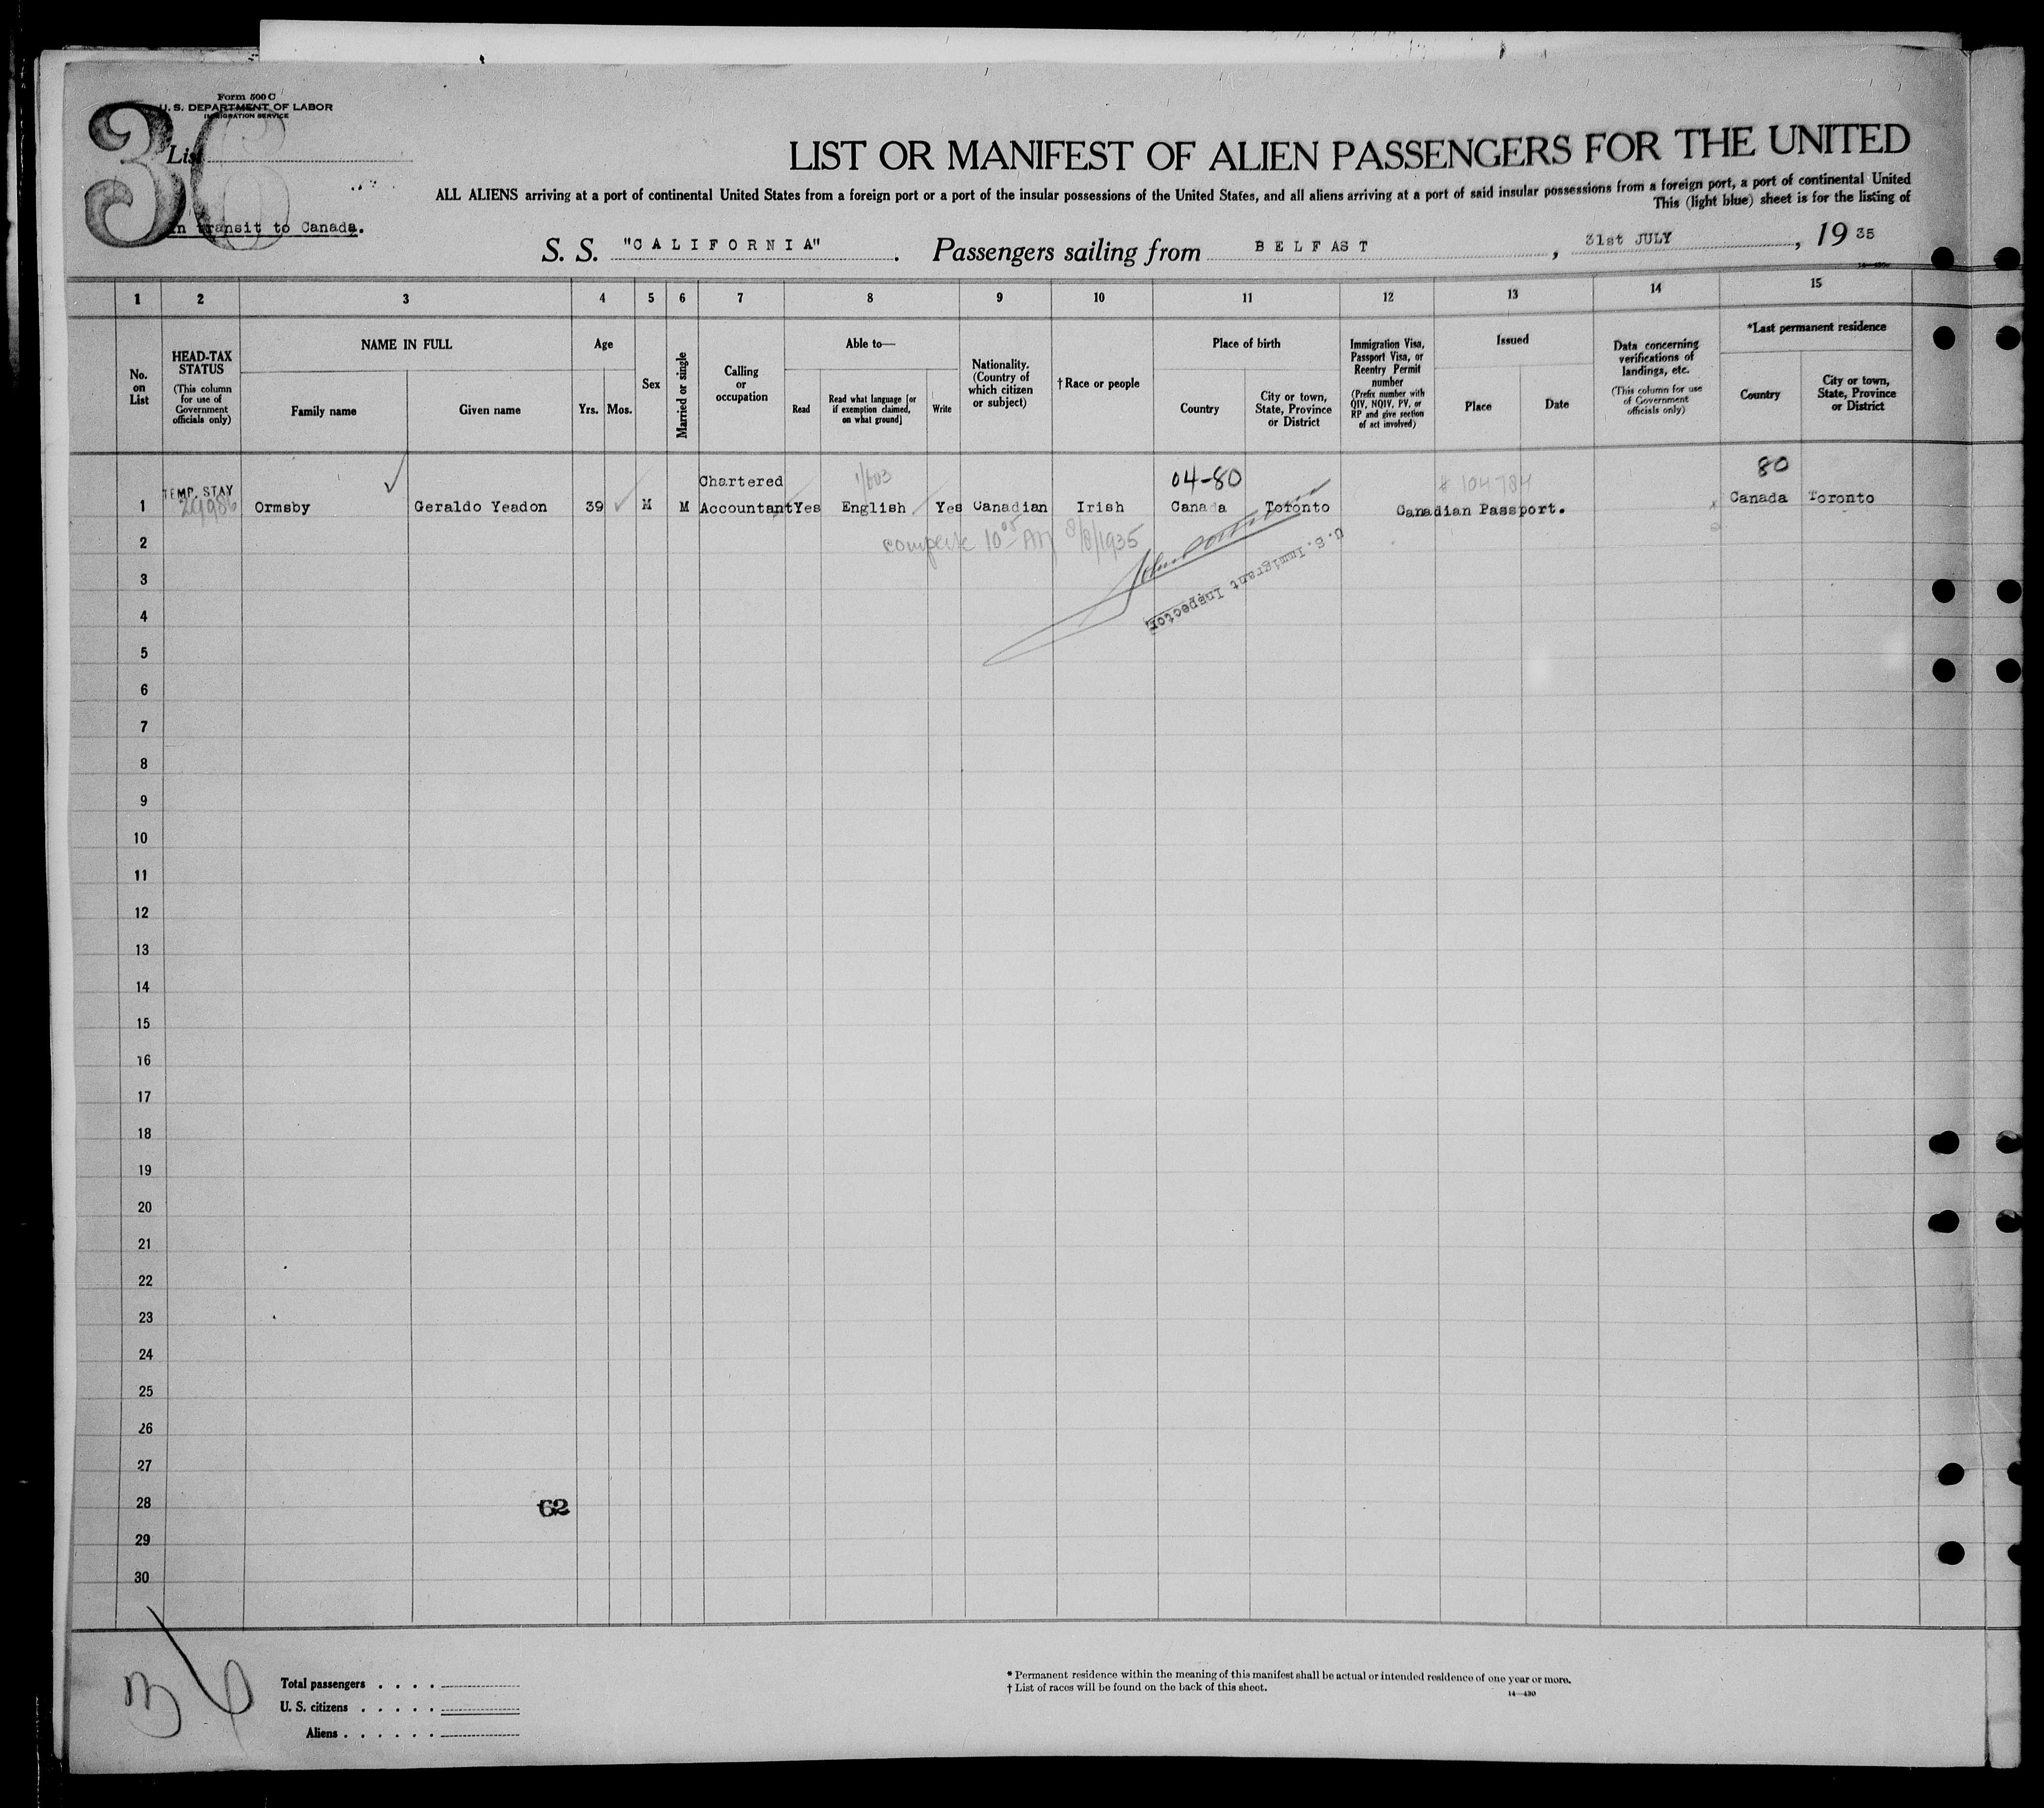 Form 500 C
U. S. DEPARTMENT OF LABOR
IMMIGRATION SERVICE
36
List
In transit to Canada.
LIST OR MANIFEST OF ALIEN PASSENGERS FOR THE UNITED
ALL ALIENS arriving at a port of continental United States from a foreign port or a port of the insular possessions of the United States, and all aliens arriving at a port of said insular possessions from a foreign port, a port of continental United
This (light blue) sheet is for the listing of
S. S. "CALIFORNIA". Passengers sailing from BELFAST, 31st JULY, 1935
1 2 3 4 5 6 7 8 9 10 11 12 13 14 15
No. on List
HEAD-TAX STATUS (This column for use of Government officials only)
NAME IN FULL
Family name
Given name
Age
Yrs. Mos.
Sex
Married or single
Calling or occupation
Able to—
Read
Read what language [or if exemption claimed, on what ground]
Write
Nationality. (Country of which citizen or subject)
† Race or people
Place of birth
Country
City or town, State, Province or District
Immigration Visa, Passport Visa, or Reentry Permit number (Prefix number with QIV, NQIV, PV, or RP and give section of act involved)
Issued
Place
Date
Data concerning verifications of landings, etc. (This column for use of Government officials only)
*Last permanent residence
Country
City or town, State, Province or District
04-80
80
# 104784
1 TEMP. STAY Ormsby Geraldo Yeadon 39 M M Chartered Accountant Yes English Yes Canadian Irish Canada Toronto Canadian Passport. Canada Toronto
2
3
U.S. Immigrant Inspector
4
5
6
7
8
9
10
11
12
13
14
15
16
17
18
19
20
21
22
23
24
25
26
27
28
62
29
30
36
Total passengers . . . .
U. S. citizens . . . . .
Aliens . . . . . .
* Permanent residence within the meaning of this manifest shall be actual or intended residence of one year or more.
† List of races will be found on the back of this sheet.
14—430